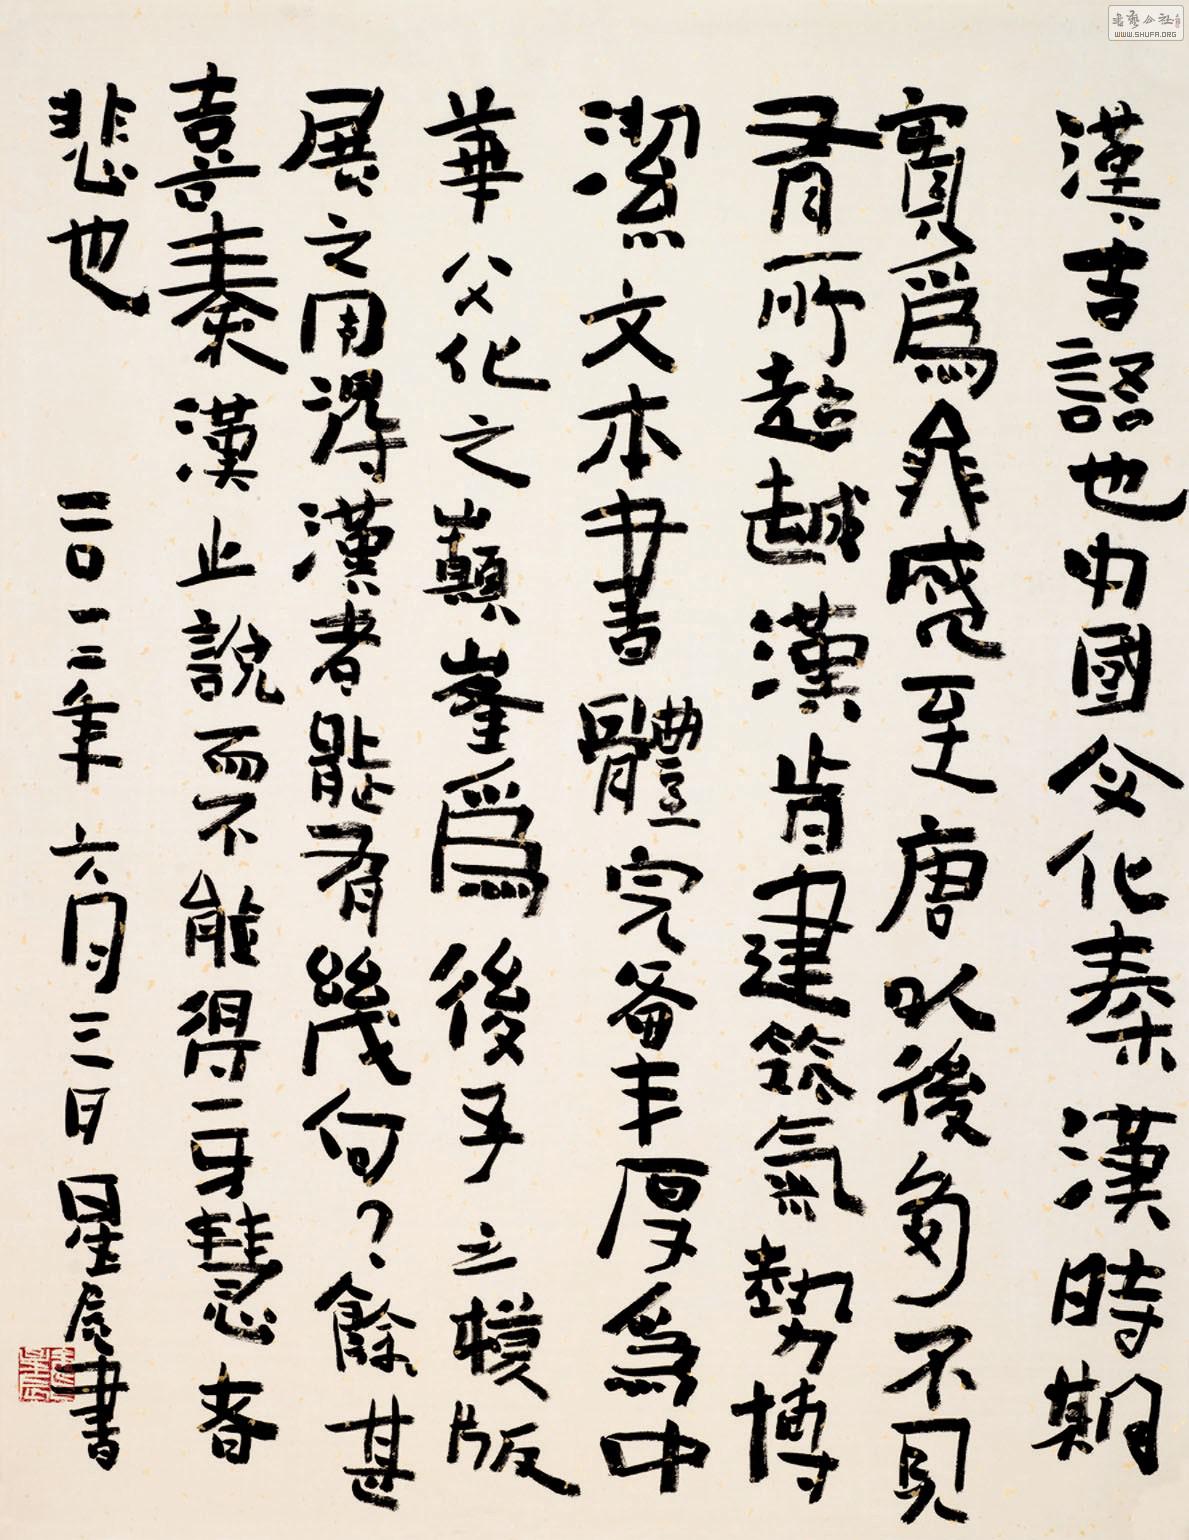 漢吉語也中國文化秦漢時期
爲至唐以後不見
有所超越漢肯建筑氣勢博
文本書體完备丰厚為中
華文化之巔峯爲後立模版
展之用得漢者能有幾何？餘甚
喜秦漢止說而不能得一牙慧者
悲也 二〇一二年六月三日星辰書
書藝公社
WWW.SHUFA.ORG